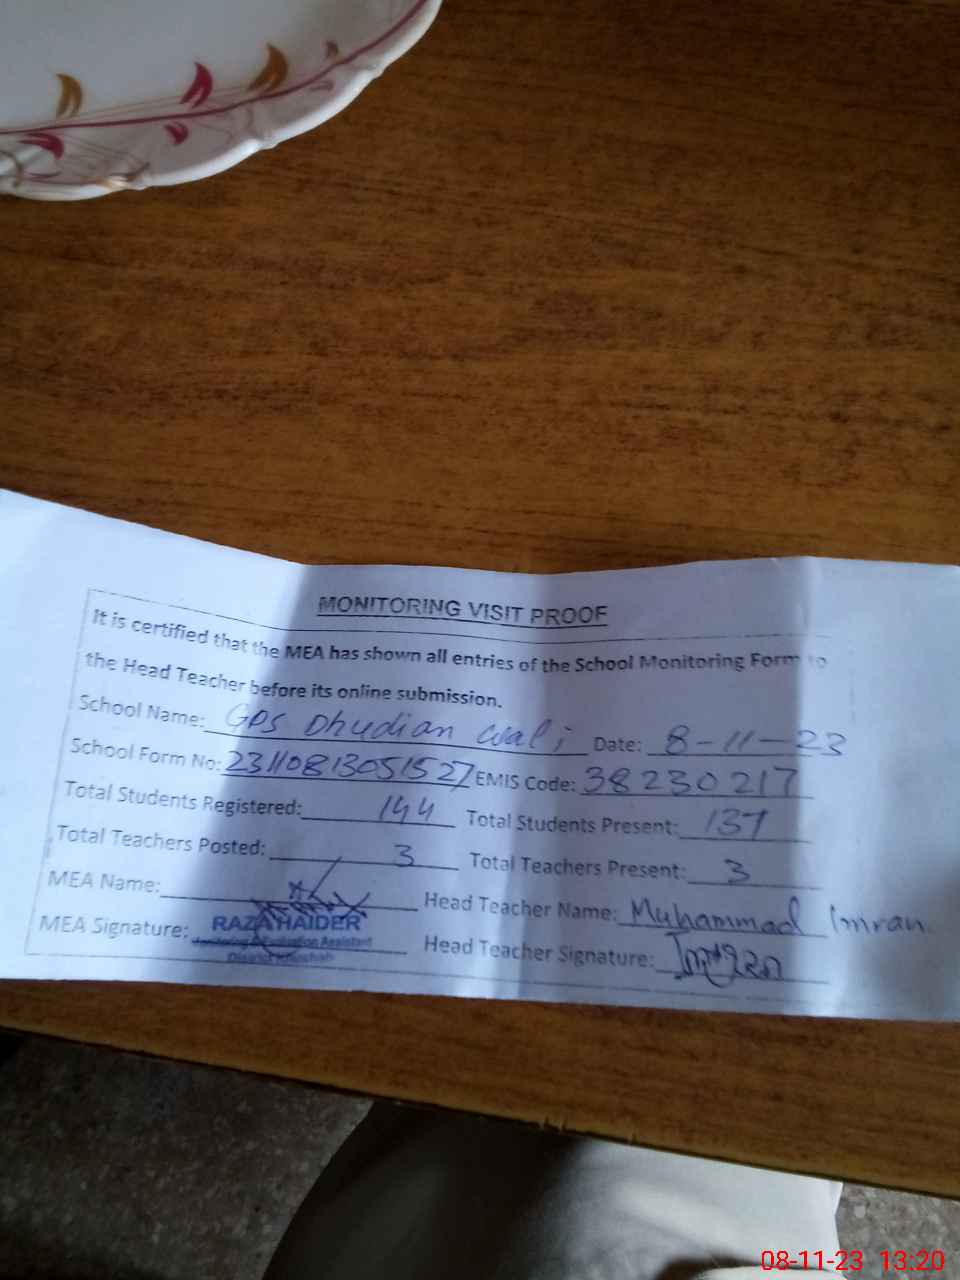 MONITORING VISIT PROOF
It is certified that the MEA has shown all entries of the School Monitoring Form to
the Head Teacher before its online submission.
School Name: GPS Dhudian wali Date: 8-11-23
School Form No: 23110813051527 EMIS Code: 38230217
Total Students Registered: 144 Total Students Present: 137
Total Teachers Posted: 3 Total Teachers Present: 3
MEA Name: Head Teacher Name: Muhammad Imran
RAZA HAIDER
MEA Signature: Head Teacher Signature: Imran
Monitoring & Evaluation Assistant
District Khushab
08-11-23 13:20